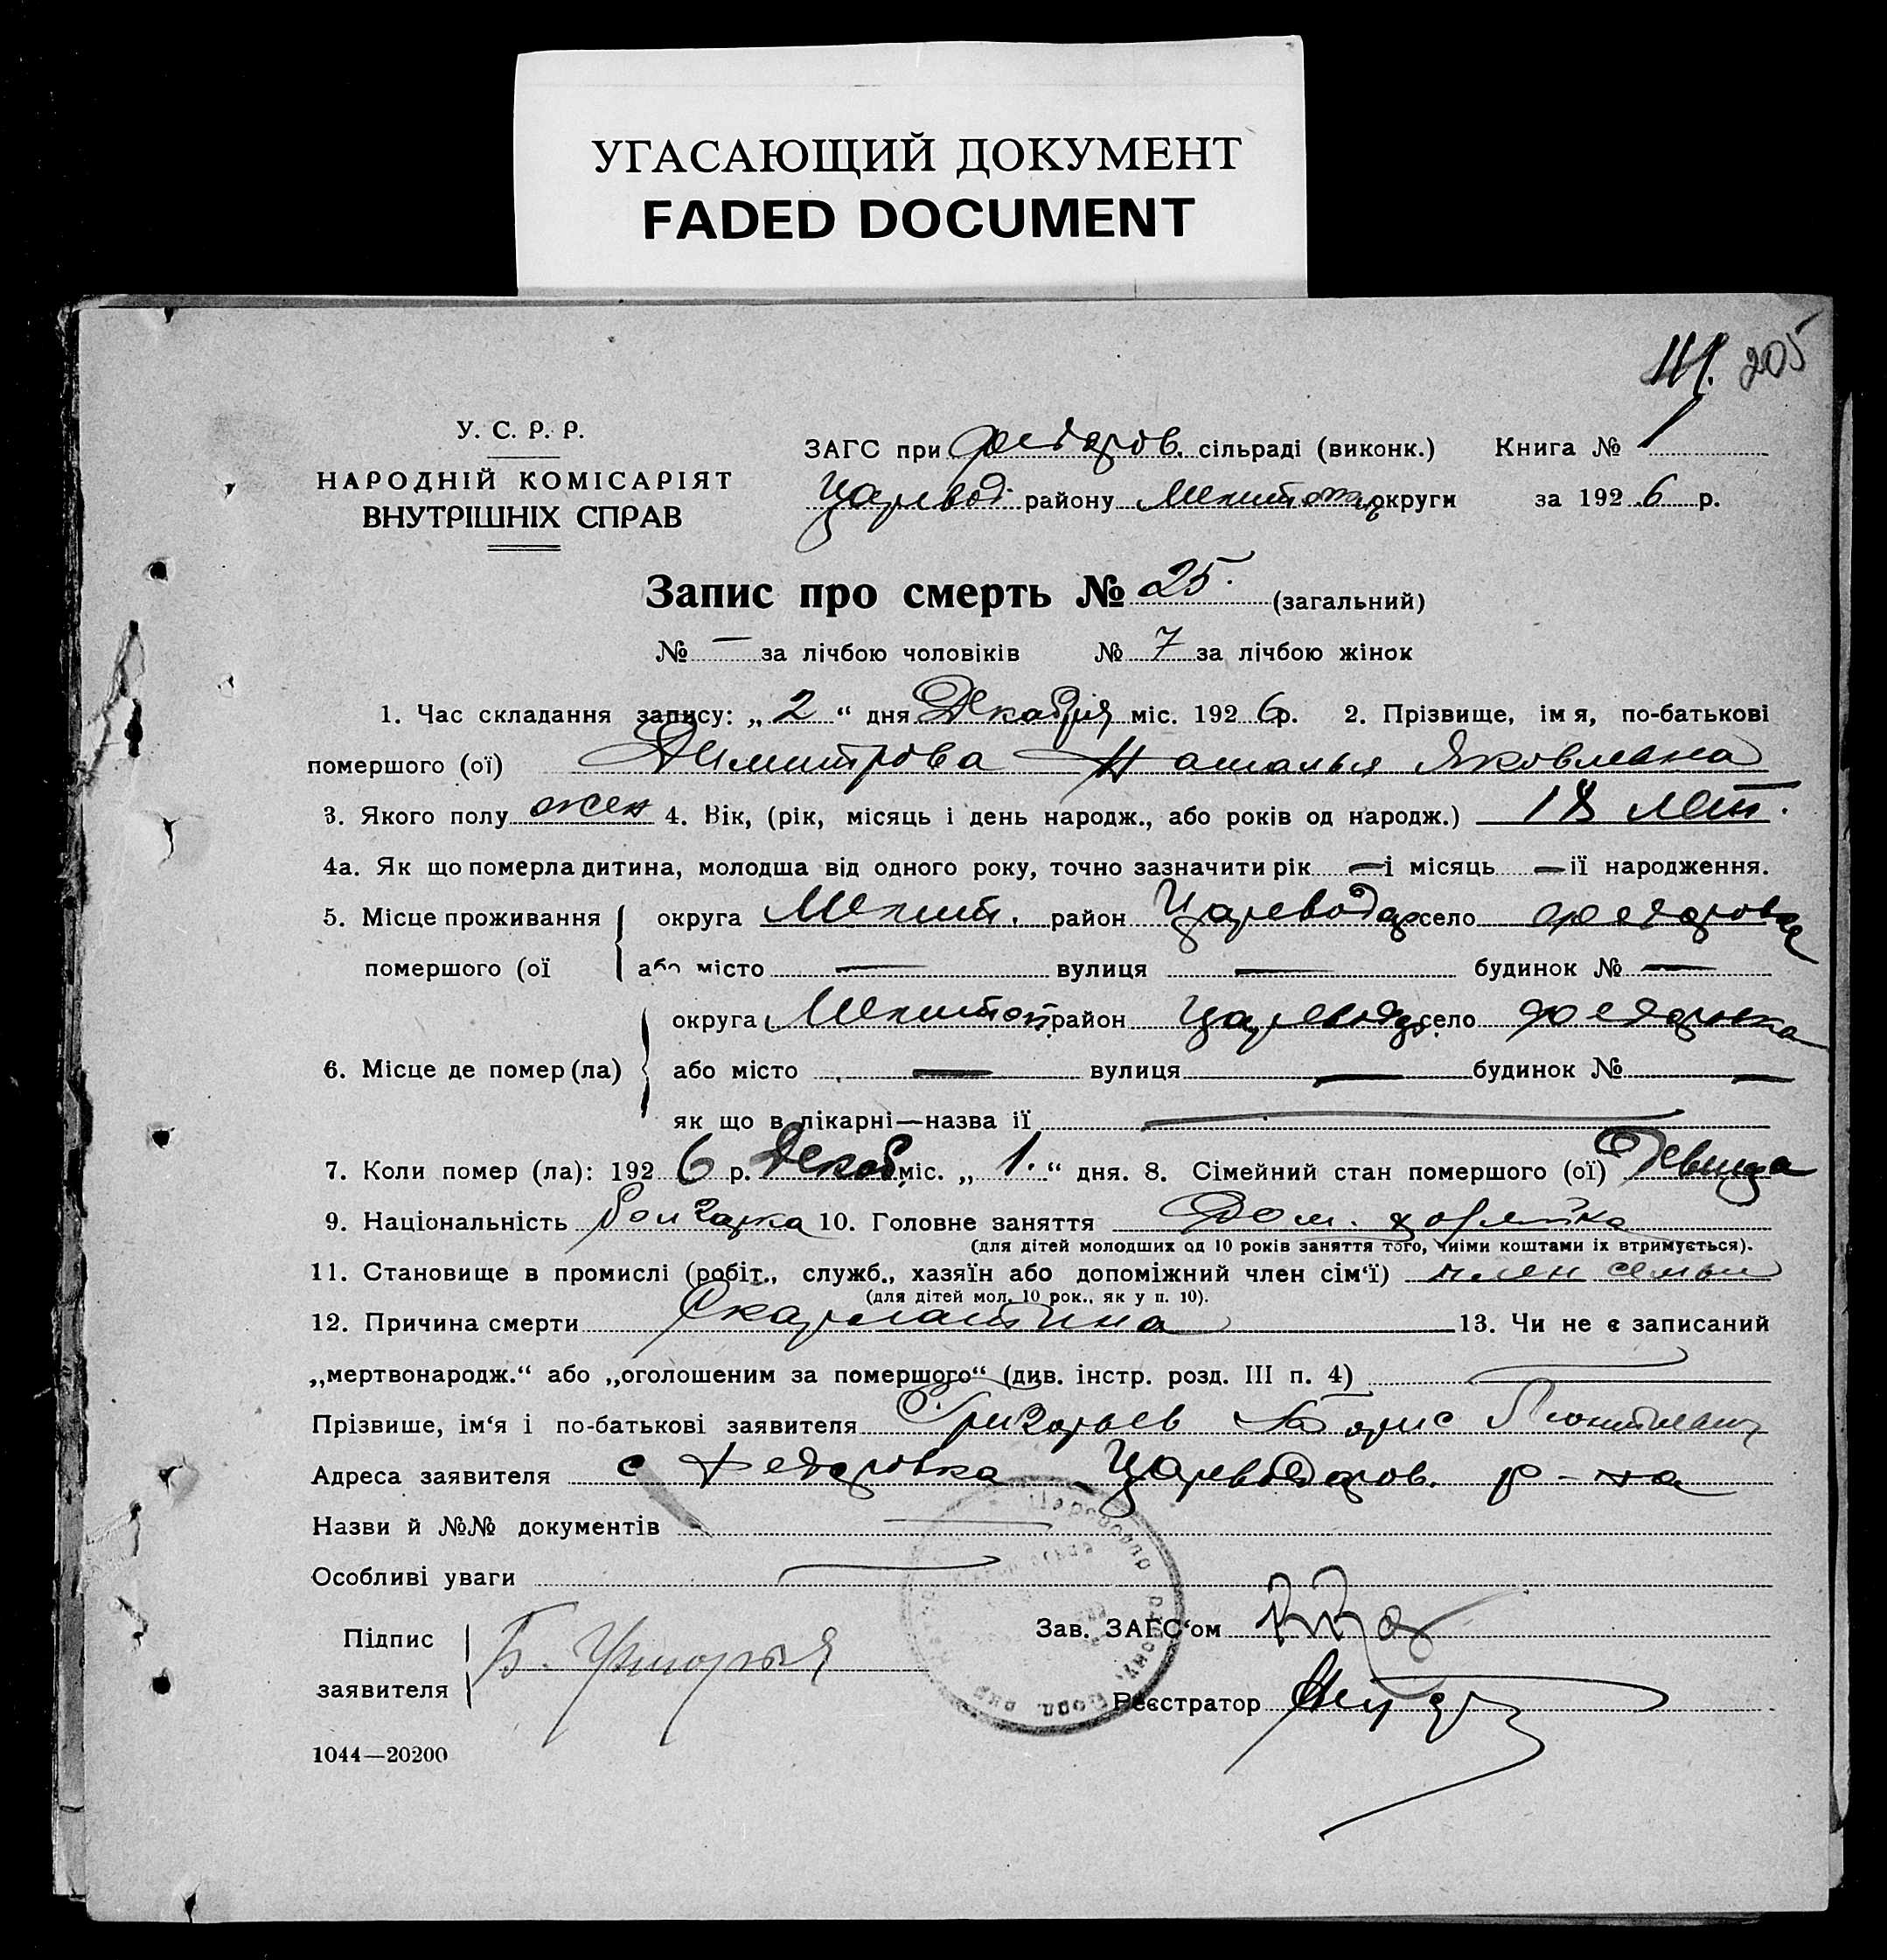 УГАСАЮЩИЙ ДОКУМЕНТ
FADED DOCUMENT
205
У. С. Р. Р.
НАРОДНІЙ КОМІСАРІЯТ
ВНУТРІШНІХ СПРАВ
ЗАГС при Федоров. сільраді (виконк.) Книга № 1
Царевод. району Мелитоп. округи за 1926 р.
Запис про смерть № 25. (загальний)
№ — за лічбою чоловіків № 7 за лічбою жінок
1. Час складання запису: „2“ дня Декабря міс. 1926 р. 2. Прізвище, імя, по-батькові
помершого (ої) Димитрова Наталья Яковлевна
3. Якого полу жен 4. Вік, (рік, місяць і день народж., або років од народж.) 18 лет.
4а. Як що померла дитина, молодша від одного року, точно зазначити рік — і місяць — її народження.
5. Місце проживання округа Мелит. район Цареводар село Федоровка
помершого (ої або місто — вулиця — будинок № —
округа Мелитоп. район Цареводар. село Федоровка
6. Місце де помер (ла) або місто — вулиця — будинок № —
як що в лікарні—назва її —
7. Коли помер (ла): 1926 р. Декаб. міс. „1.“ дня. 8. Сімейний стан помершого (ої) Девица
9. Національність болгарка 10. Головне заняття Дом. хозяйка
(для дітей молодших од 10 років заняття того, чиїми коштами їх втримується).
11. Становище в промислі (робіт., служб., хазяїн або допоміжний член сім‘ї) член семьи
(для дітей мол. 10 рок., як у п. 10).
12. Причина смерти Скарлатина 13. Чи не є записаний
„мертвонародж.“ або „оголошеним за помершого“ (див. інстр. розд. III п. 4) —
Прізвище, ім‘я і по-батькові заявителя Григорьев Борис
Адреса заявителя с Федоровка Цареводаров. р-на
Назви й №№ документів —
Особливі уваги —
Підпис
заявителя
Б. Григорьев
Зав. ЗАГС‘ом
Реєстратор
1044—20200